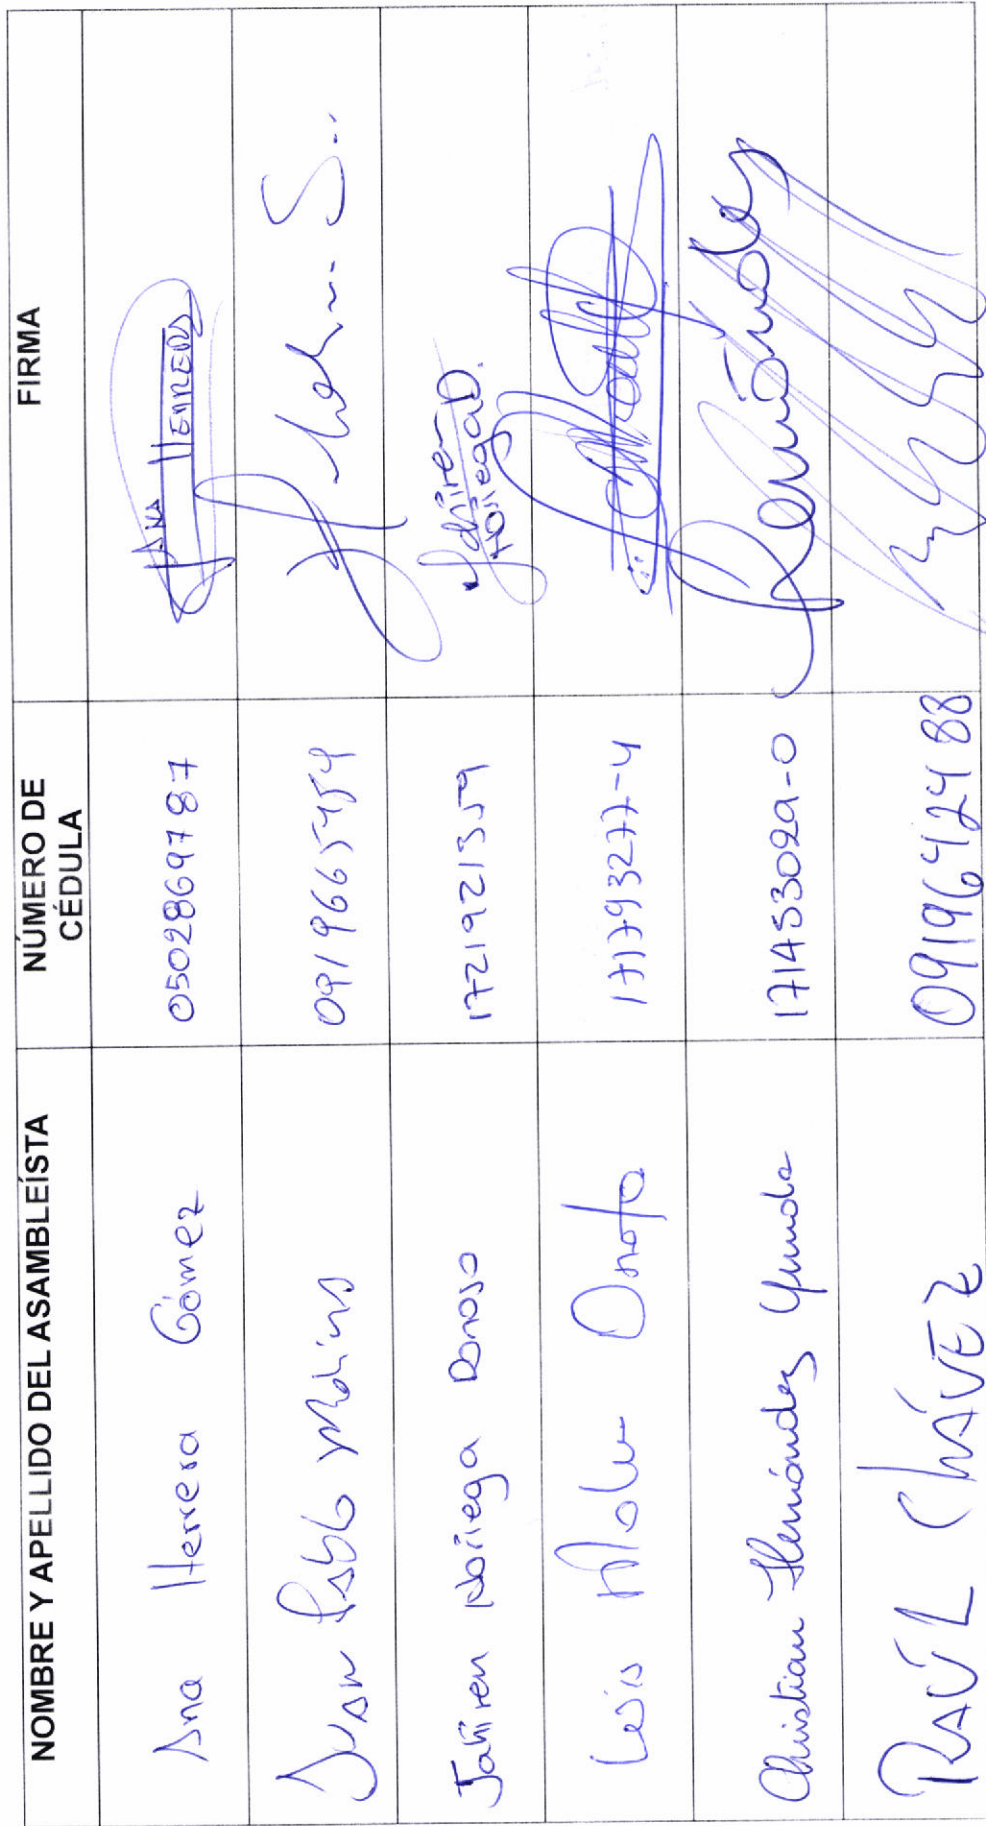 NOMBRE Y APELLIDO DEL ASAMBLEÍSTA NÚMERO DE CÉDULA FIRMA
Ana Herrera Gómez 0502869787 Ana Herrera
Juan Pablo Molina 0919665454
Jahiren Noriega Donoso 1721921359 Jahiren Noriega D.
Luis Molina Onofa 171793277-4
Christian Hernández Yunda 171453029-0 Hernández
RAÚL CHÁVEZ 0919642488